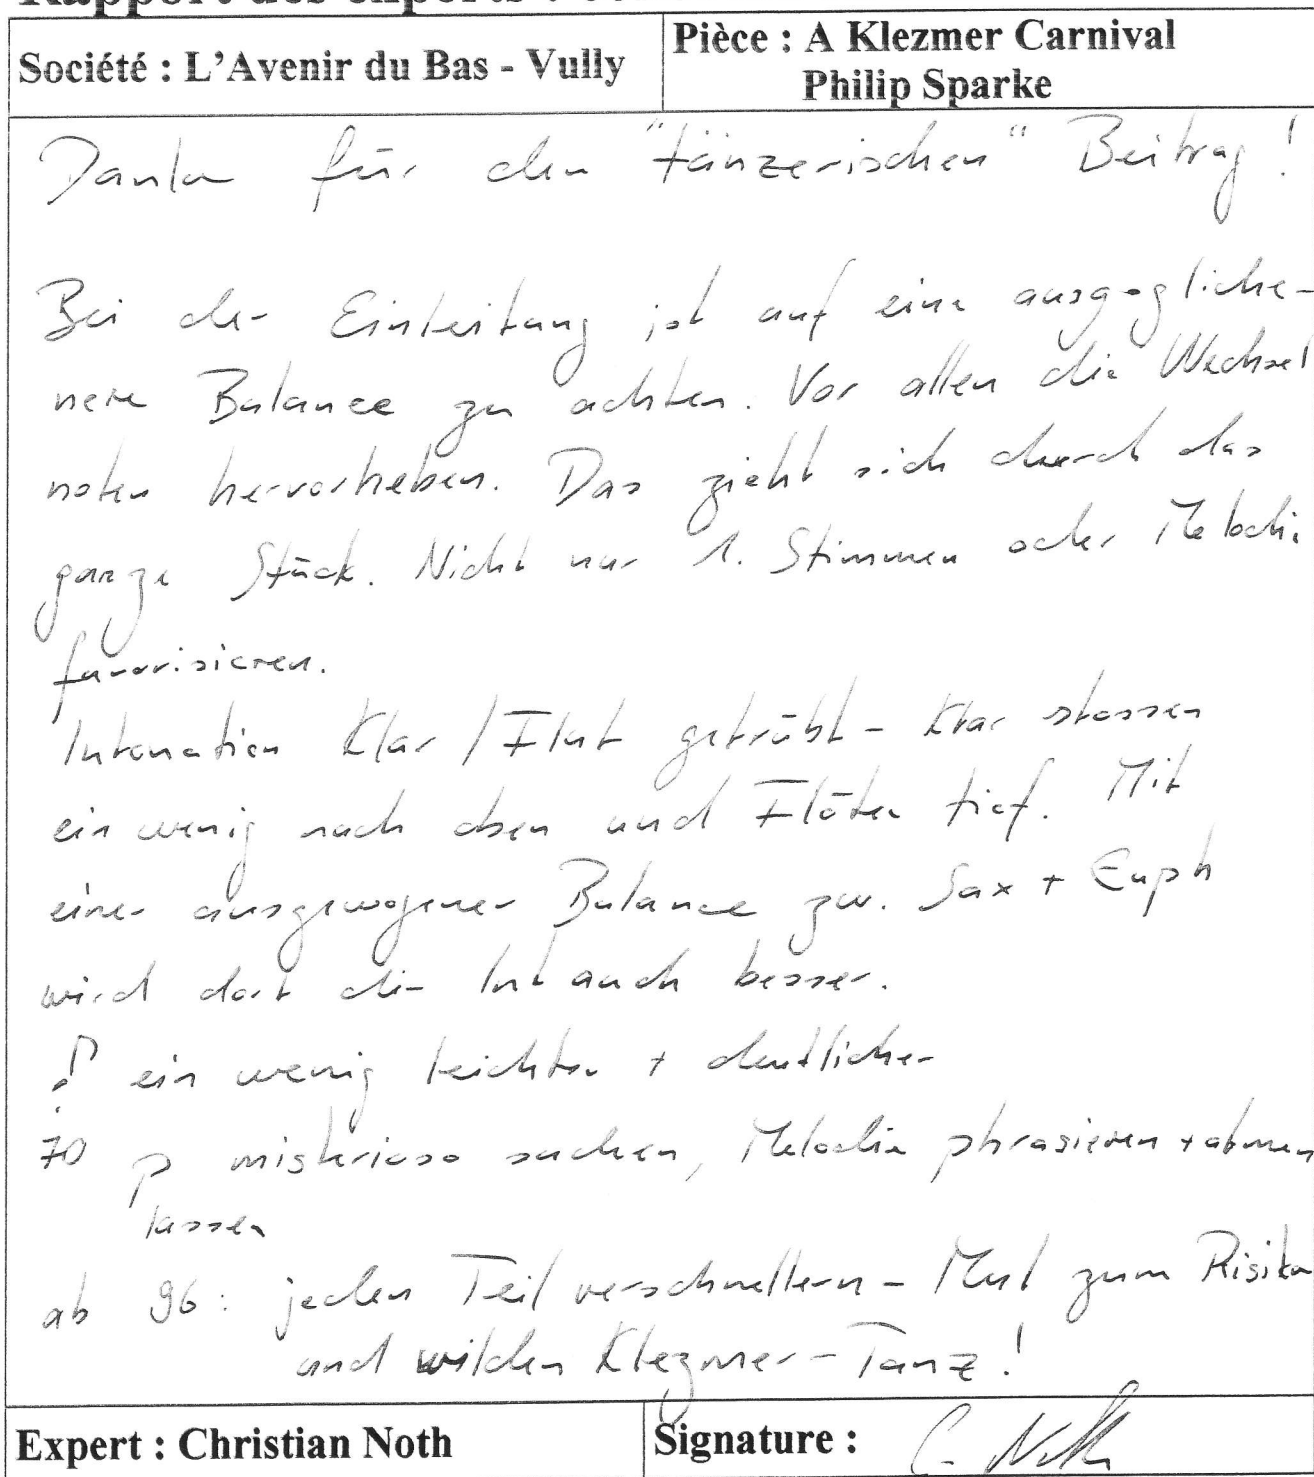 Rapport des experts :
Société : L'Avenir du Bas - Vully
Pièce : A Klezmer Carnival
Philip Sparke
Danke für den "tänzerischen" Beitrag !
Bei der Einleitung ist auf eine ausgegliche-
nere Balance zu achten. Vor allen die Wechsel
noten hervorheben. Das zieht sich durch das
ganze Stück. Nicht nur 1. Stimmen oder Melodie
favorisieren.
Intonation Klar / Flut getrübt - Klar stossen
ein wenig nach oben und Flöten tief. Mit
einer ausgewogener Balance zw. Sax + Euph
wird dort die Int auch besser.
ein wenig leichter + deutlicher
70 p misterioso suchen, Melodie phrasieren + atmen
lassen
ab 96 : jeden Teil verschnellern - Mut zum Risiko
und wilden Klezmer-Tanz !
Expert : Christian Noth
Signature : C. Noth